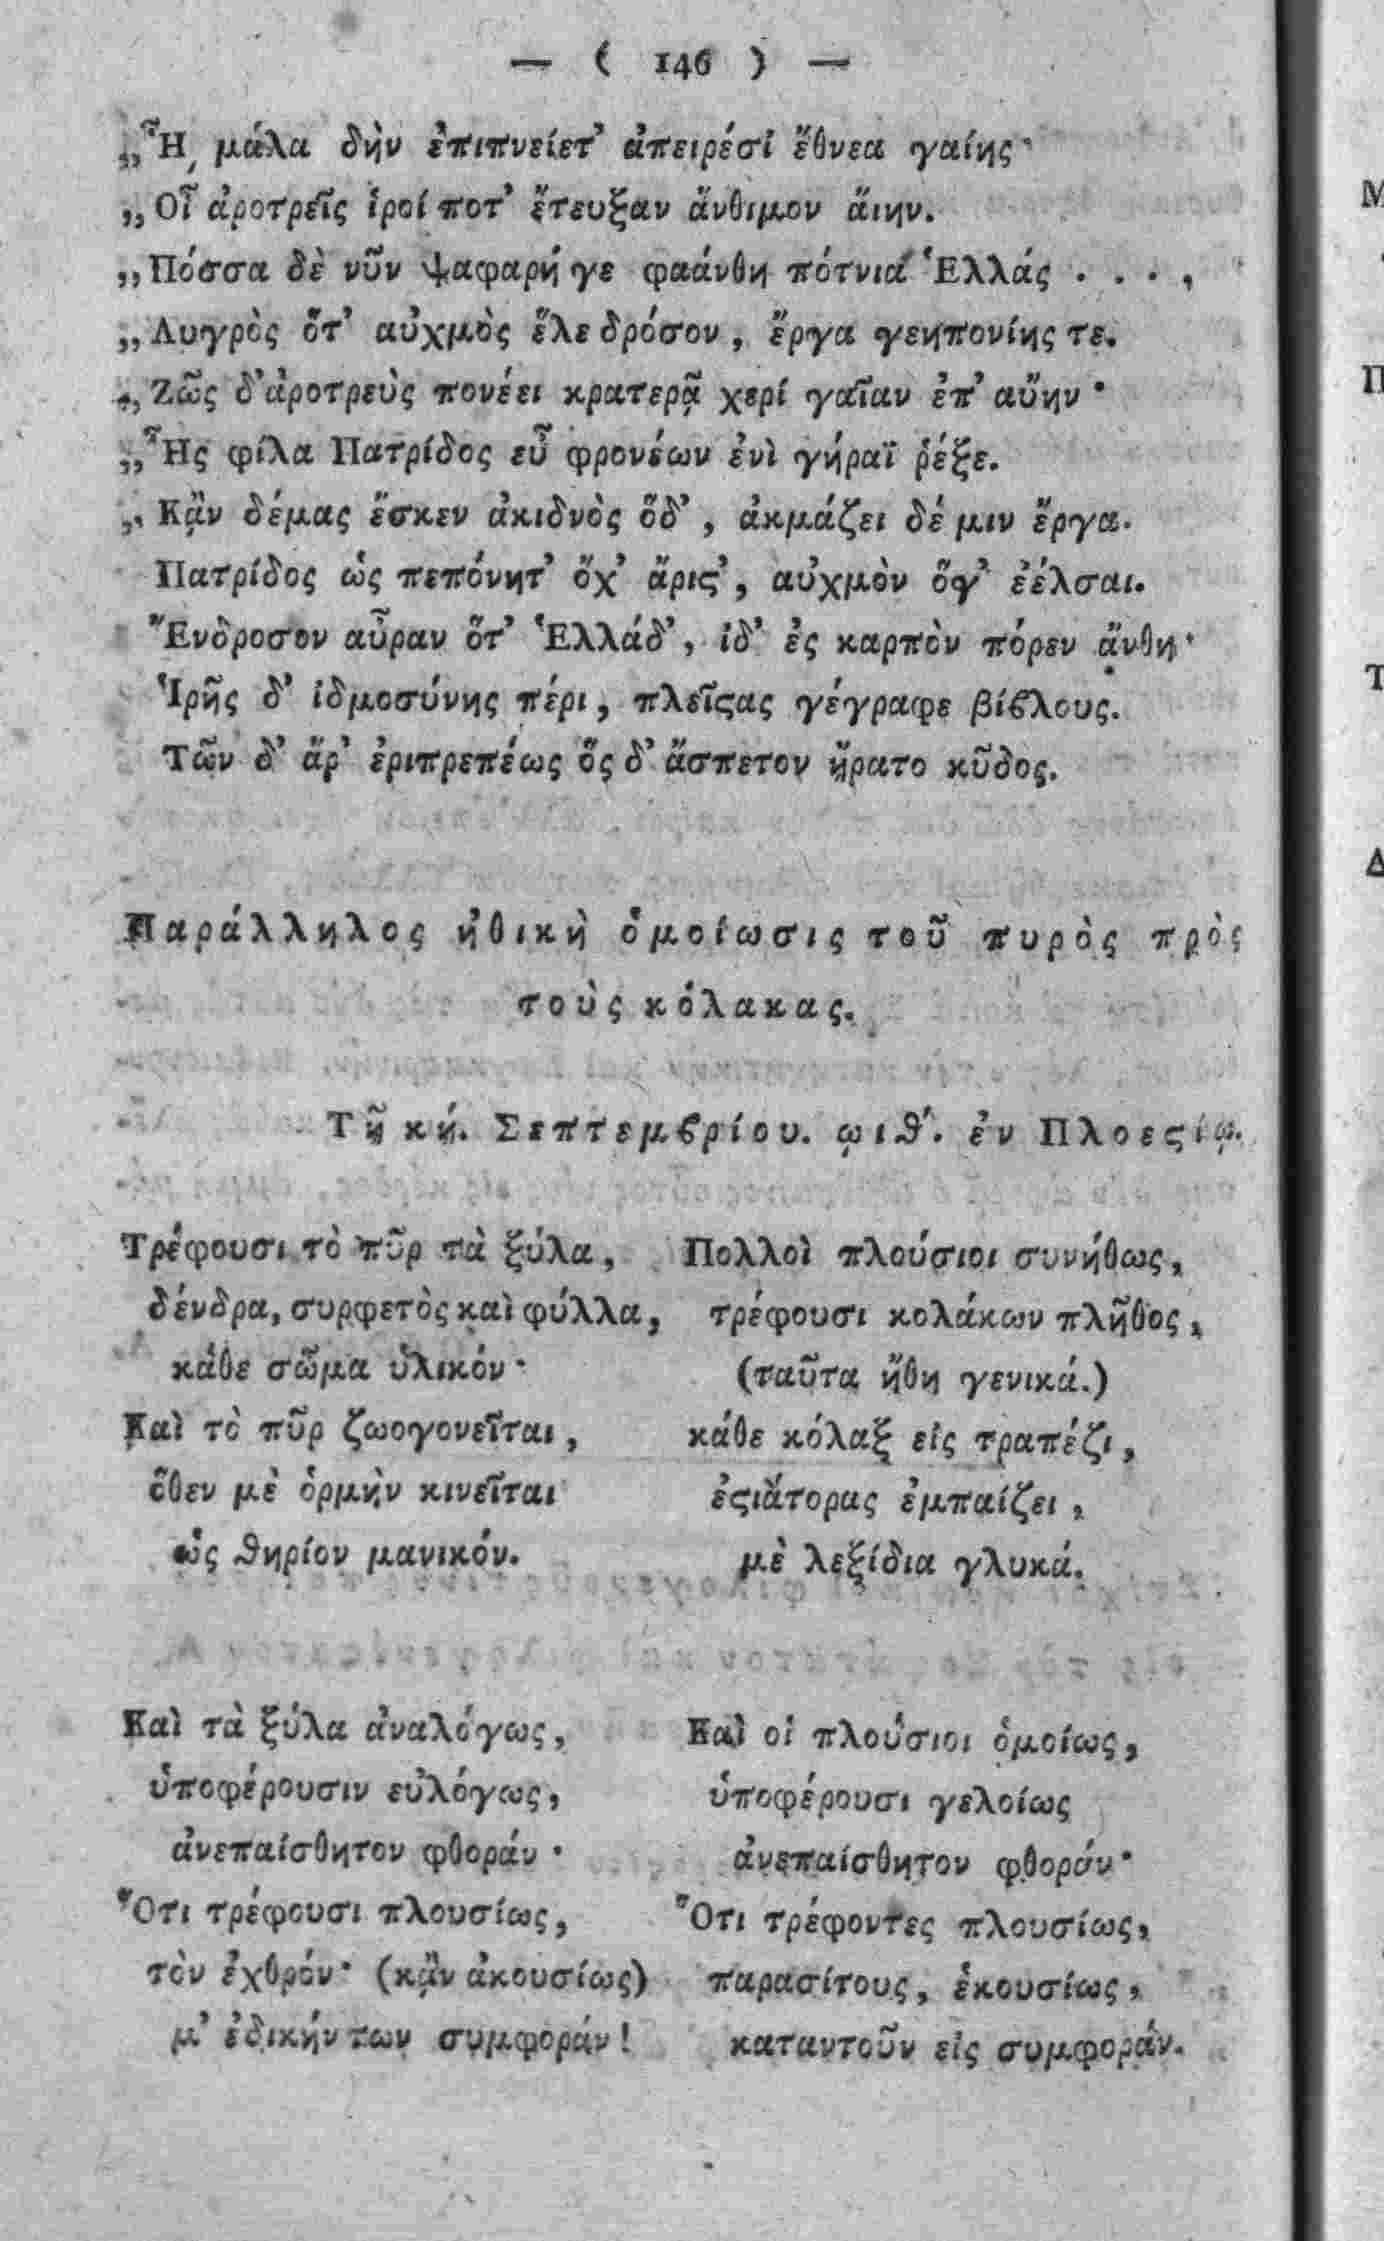 — ( 146 ) —
„Ἦ μάλα δὴν ἐπιπνείετ' ἀπειρέσι ἔθνεα γαίης·
„Οἷ ἀροτρεῖς ἱροί ποτ' ἔτευξαν ἄνθιμον ἄιην.
„Πόσσα δὲ νῦν ψαφαρή γε φαάνθη πότνια Ἑλλάς . . . ,
„Λυγρὸς ὅτ' αὐχμὸς ἕλε δρόσον, ἔργα γεηπονίης τε.
„Ζῶς δ' ἀροτρεὺς πονέει κρατερᾷ χερί γαῖαν ἐπ' αὔην·
„Ἧς φίλα Πατρίδος εὖ φρονέων ἐνὶ γήραϊ ῥέξε.
„Κᾂν δέμας ἔσκεν ἀκιδνὸς ὅδ', ἀκμάζει δέ μιν ἔργα.
Πατρίδος ὡς πεπόνητ' ὄχ' ἄριϛ', αὐχμὸν ὄφ' ἐέλσαι.
Ἔνδροσον αὖραν ὅτ' Ἑλλάδ', ἰδ' ἐς καρπὸν πόρεν ἄνθη·
Ἱρῆς δ' ἰδμοσύνης πέρι, πλείϛας γέγραφε βίβλους.
Τῶν δ' ἄρ' ἐριπρεπέως ὅς δ' ἄσπετον ᾔρατο κῦδος.
Παράλληλος ἠθικὴ ὁμοίωσις τοῦ πυρὸς πρὸς
τοὺς κόλακας.
Τῇ κή. Σεπτεμβρίου. ῳιθ'. ἐν Πλοεϛίῳ.
Τρέφουσι τὸ πῦρ τὰ ξύλα,
δένδρα, συρφετὸς καὶ φύλλα,
κάθε σῶμα ὑλικόν·
Καὶ τὸ πῦρ ζωογονεῖται,
ὅθεν μὲ ὁρμὴν κινεῖται
ὡς θηρίον μανικόν.
Πολλοὶ πλούσιοι συνήθως,
τρέφουσι κολάκων πλῆθος,
(ταῦτα ἤθη γενικά.)
κάθε κόλαξ εἰς τραπέζι,
ἐϛιάτορας ἐμπαίζει,
μὲ λεξίδια γλυκά.
Καὶ τὰ ξύλα ἀναλόγως,
ὑποφέρουσιν εὐλόγως,
ἀνεπαίσθητον φθοράν·
Ὅτι τρέφουσι πλουσίως,
τὸν ἐχθρόν· (κᾂν ἀκουσίως)
μ' ἐδικήν των συμφοράν!
Καὶ οἱ πλούσιοι ὁμοίως,
ὑποφέρουσι γελοίως
ἀνεπαίσθητον φθοράν·
Ὅτι τρέφοντες πλουσίως,
παρασίτους, ἑκουσίως,
καταντοῦν εἰς συμφοράν.